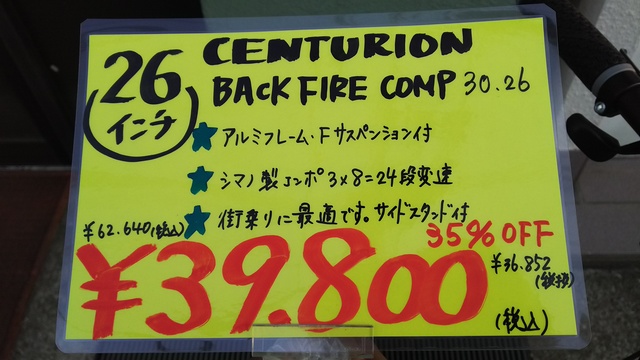 26
インチ
CENTURION
BACKFIRE COMP 30.26
アルミフレーム・Fサスペンション付
シマノ製コンポ3×8=24段変速
街乗りに最適です。サイドスタンド付
¥62.640(税込)
35%OFF
¥39.800
(税込)
¥36.852
(税抜)